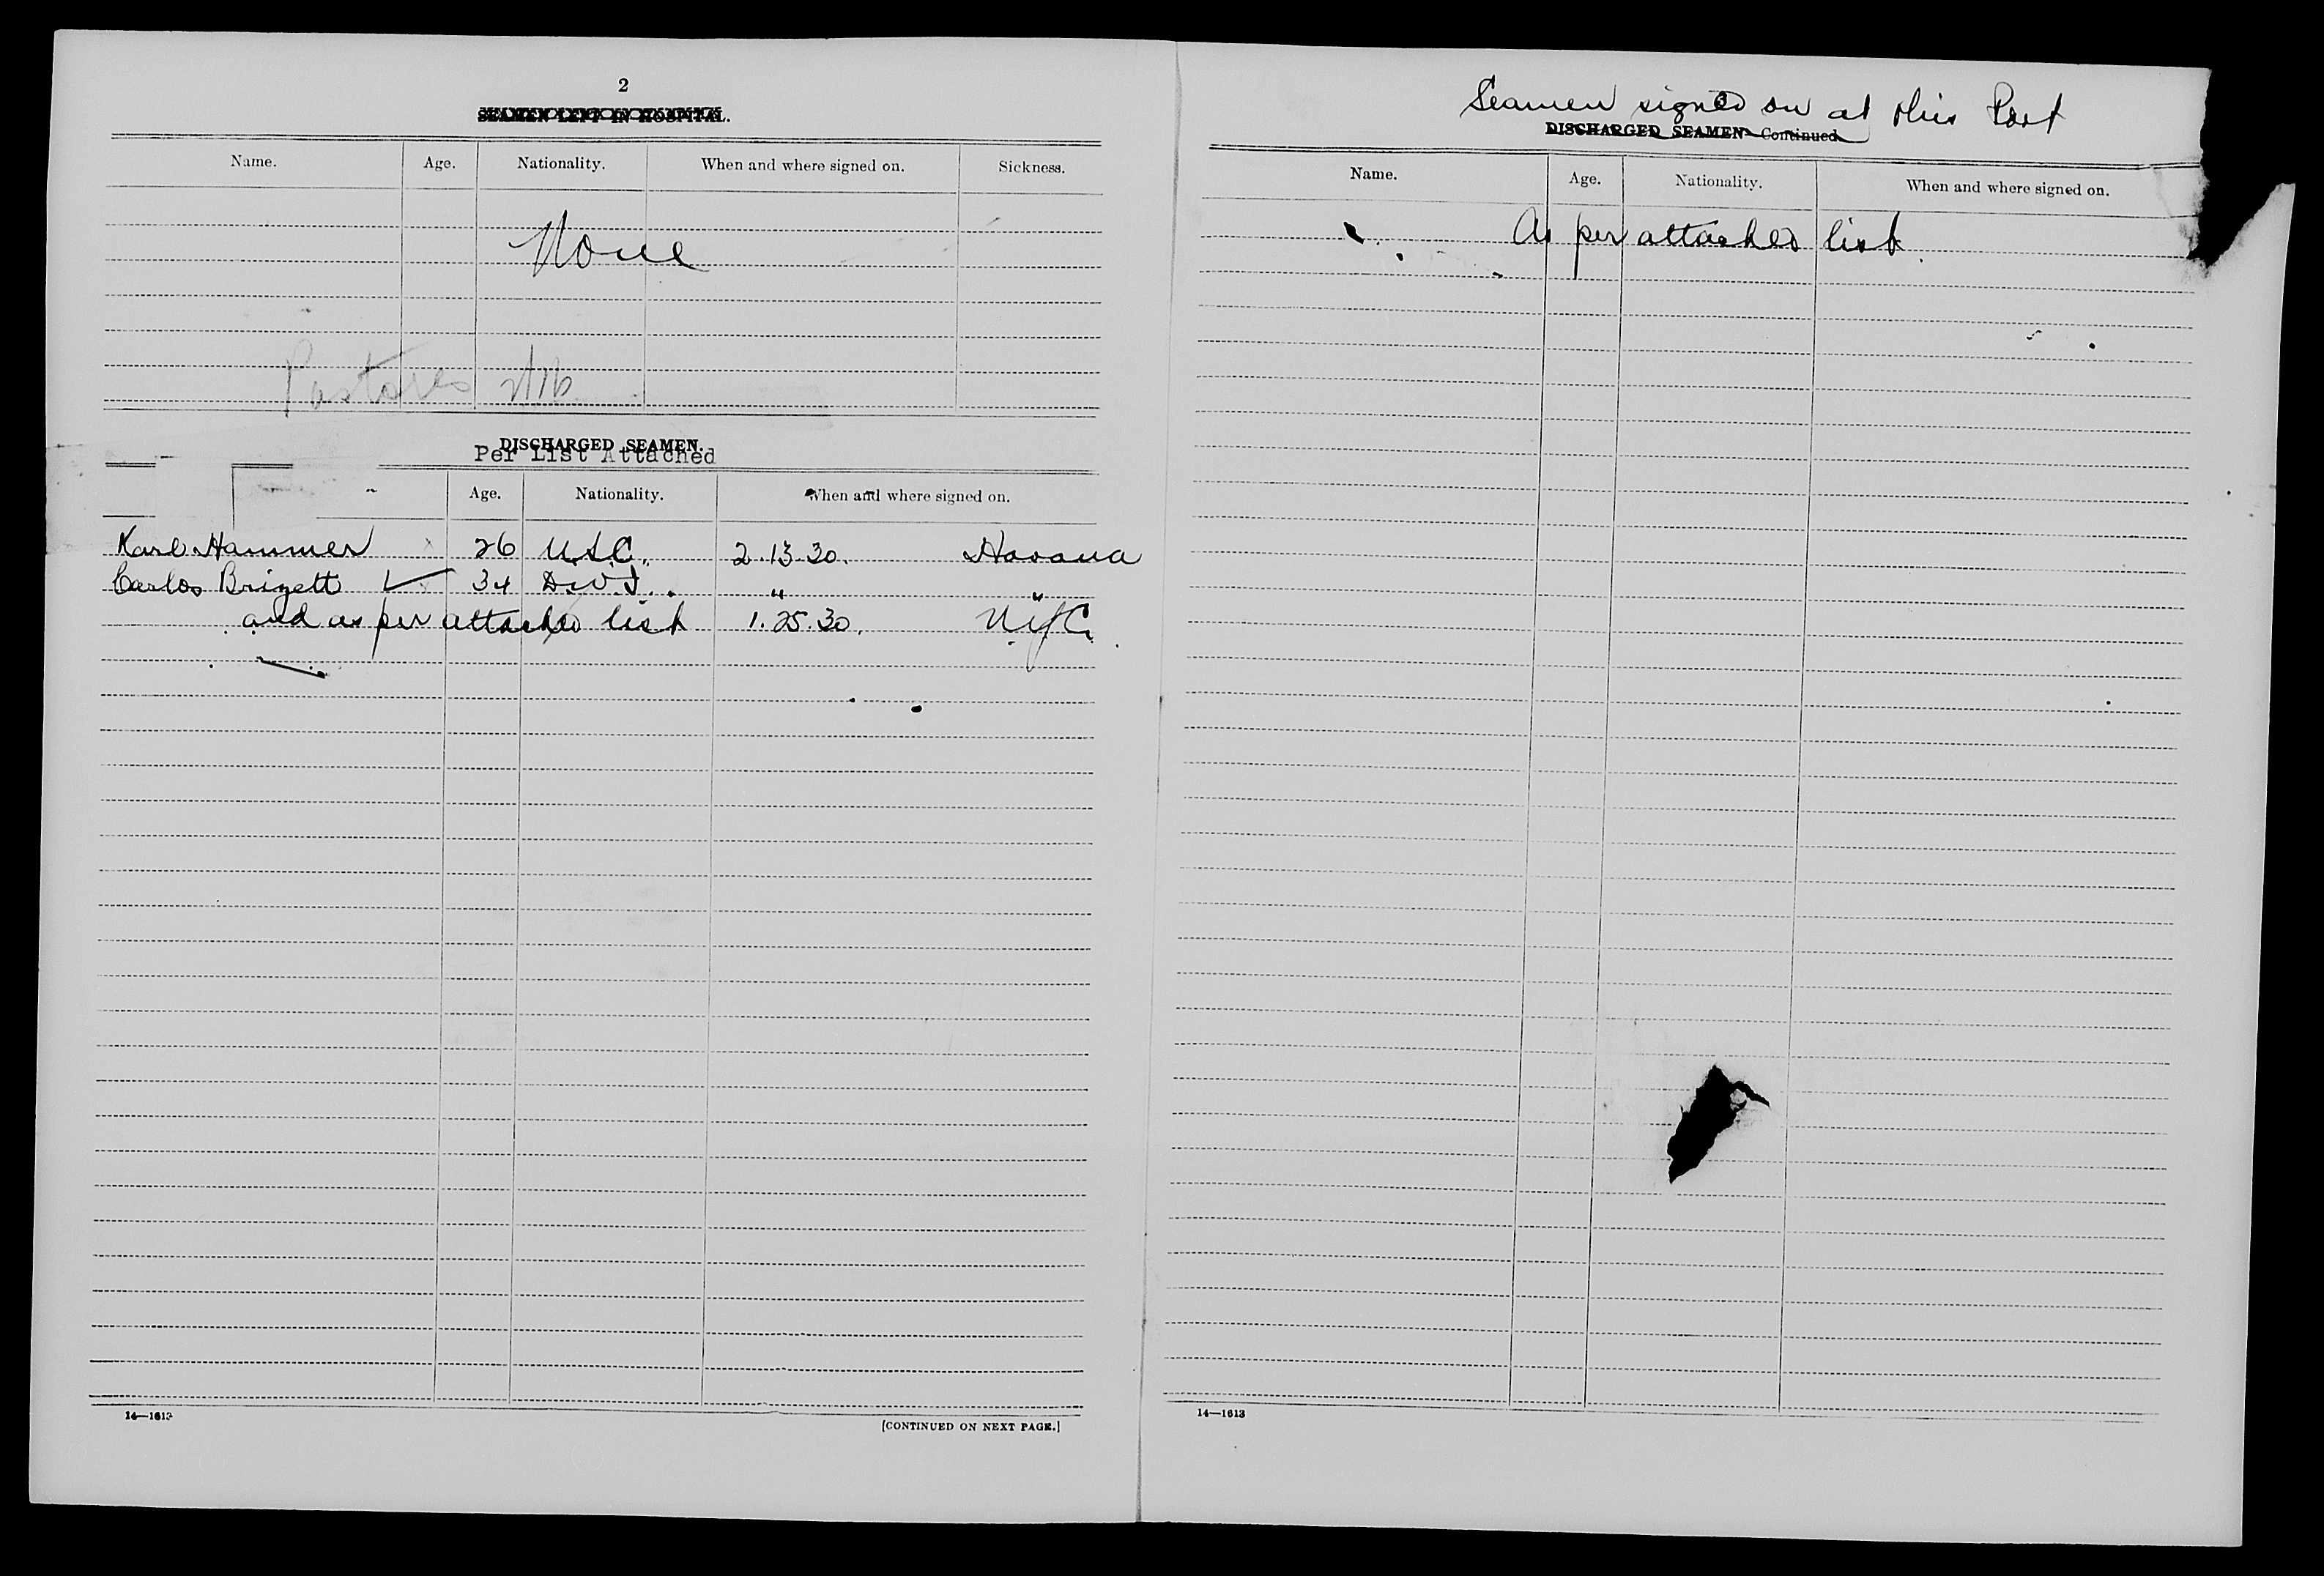 2
SEAMEN LEFT IN HOSPITAL.
Name. Age. Nationality. When and where signed on. Sickness.
None
Pastores
DISCHARGED SEAMEN.
Per List Attached
Age. Nationality. When and where signed on.
Karl Hammer 26 U.S.C. 2.13.30. Havana
Carlos Brizett 34 D.W.I. " "
and as per attached list 1.25.30. N.Y.C.
14—1613
[CONTINUED ON NEXT PAGE.]
Seamen signed on at this Port
DISCHARGED SEAMEN—Continued
Name. Age. Nationality. When and where signed on.
As per attached list.
14—1613